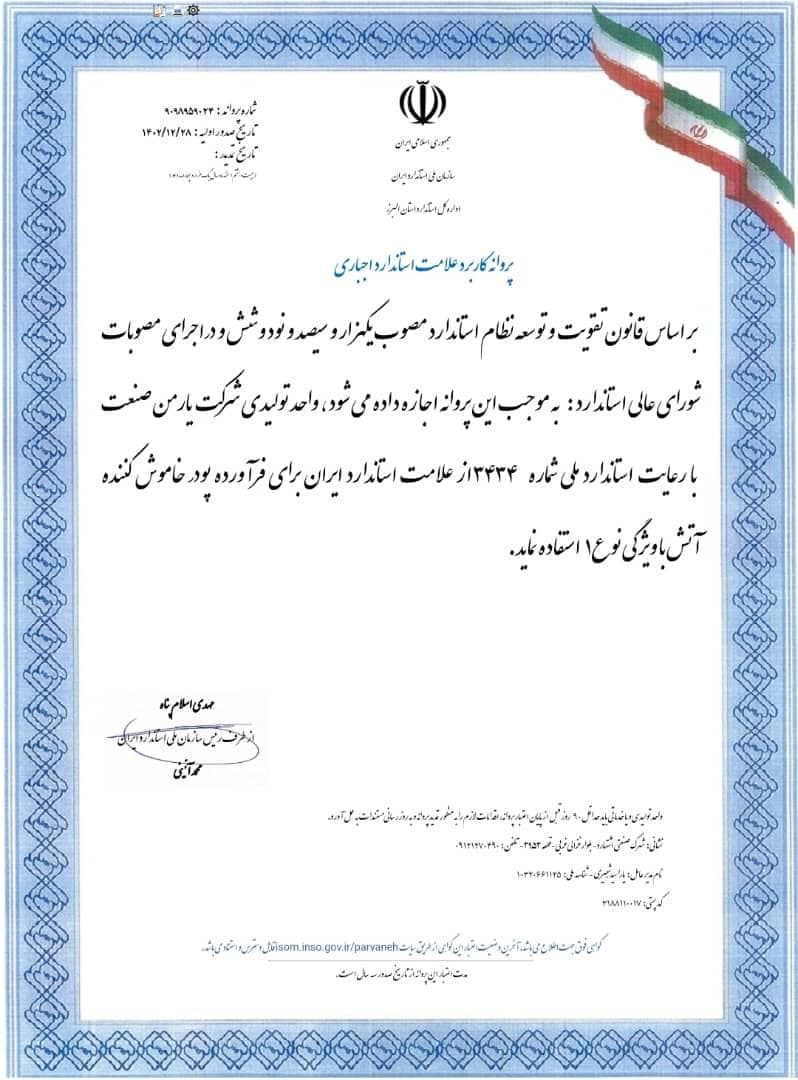 شماره پروانه: ۹۰۹۸۹۵۹۰۲۴
تاریخ صدور اولیه: ۱۴۰۲/۱۲/۲۸
تاریخ تمدید:
جمهوری اسلامی ایران
سازمان ملی استاندارد ایران
اداره کل استاندارد استان البرز
پروانه کاربرد علامت استاندارد اجباری
بر اساس قانون تقویت و توسعه نظام استاندارد مصوب یکهزار و سیصد و نود و شش و در اجرای مصوبات
شورای عالی استاندارد: به موجب این پروانه اجازه داده می شود، واحد تولیدی شرکت یارمن صنعت
با رعایت استاندارد ملی شماره ۳۴۳۴ از علامت استاندارد ایران برای فرآورده پودر خاموش کننده
آتش با ویژگی نوع ۱ استفاده نماید.
مهدی اسلام پناه
از طرف رییس سازمان ملی استاندارد ایران
محمد آئینی
واحد تولیدی و یا خدماتی باید حداقل ۹۰ روز قبل از پایان اعتبار پروانه، اقدامات لازم را به منظور تمدید پروانه و به روز رسانی مستندات به عمل آورد.
نشانی: شهرک صنعتی اشتهارد- بلوار غزالی غربی- قطعه ۳۹۵۲- تلفن: ۰۹۱۲۱۲۷۰۴۹۰
نام مدیر عامل: - شناسه ملی: ۱۰۳۲۰۶۶۱۱۲۵
کد پستی: ۳۱۸۸۱۱۰۰۱۷
گواهی فوق جهت اطلاع می باشد، آخرین وضعیت اعتبار این گواهی از طریق سایت isom.inso.gov.ir/parvaneh قابل دسترس و استناد می باشد.
مدت اعتبار این پروانه از تاریخ صدور سه سال است.